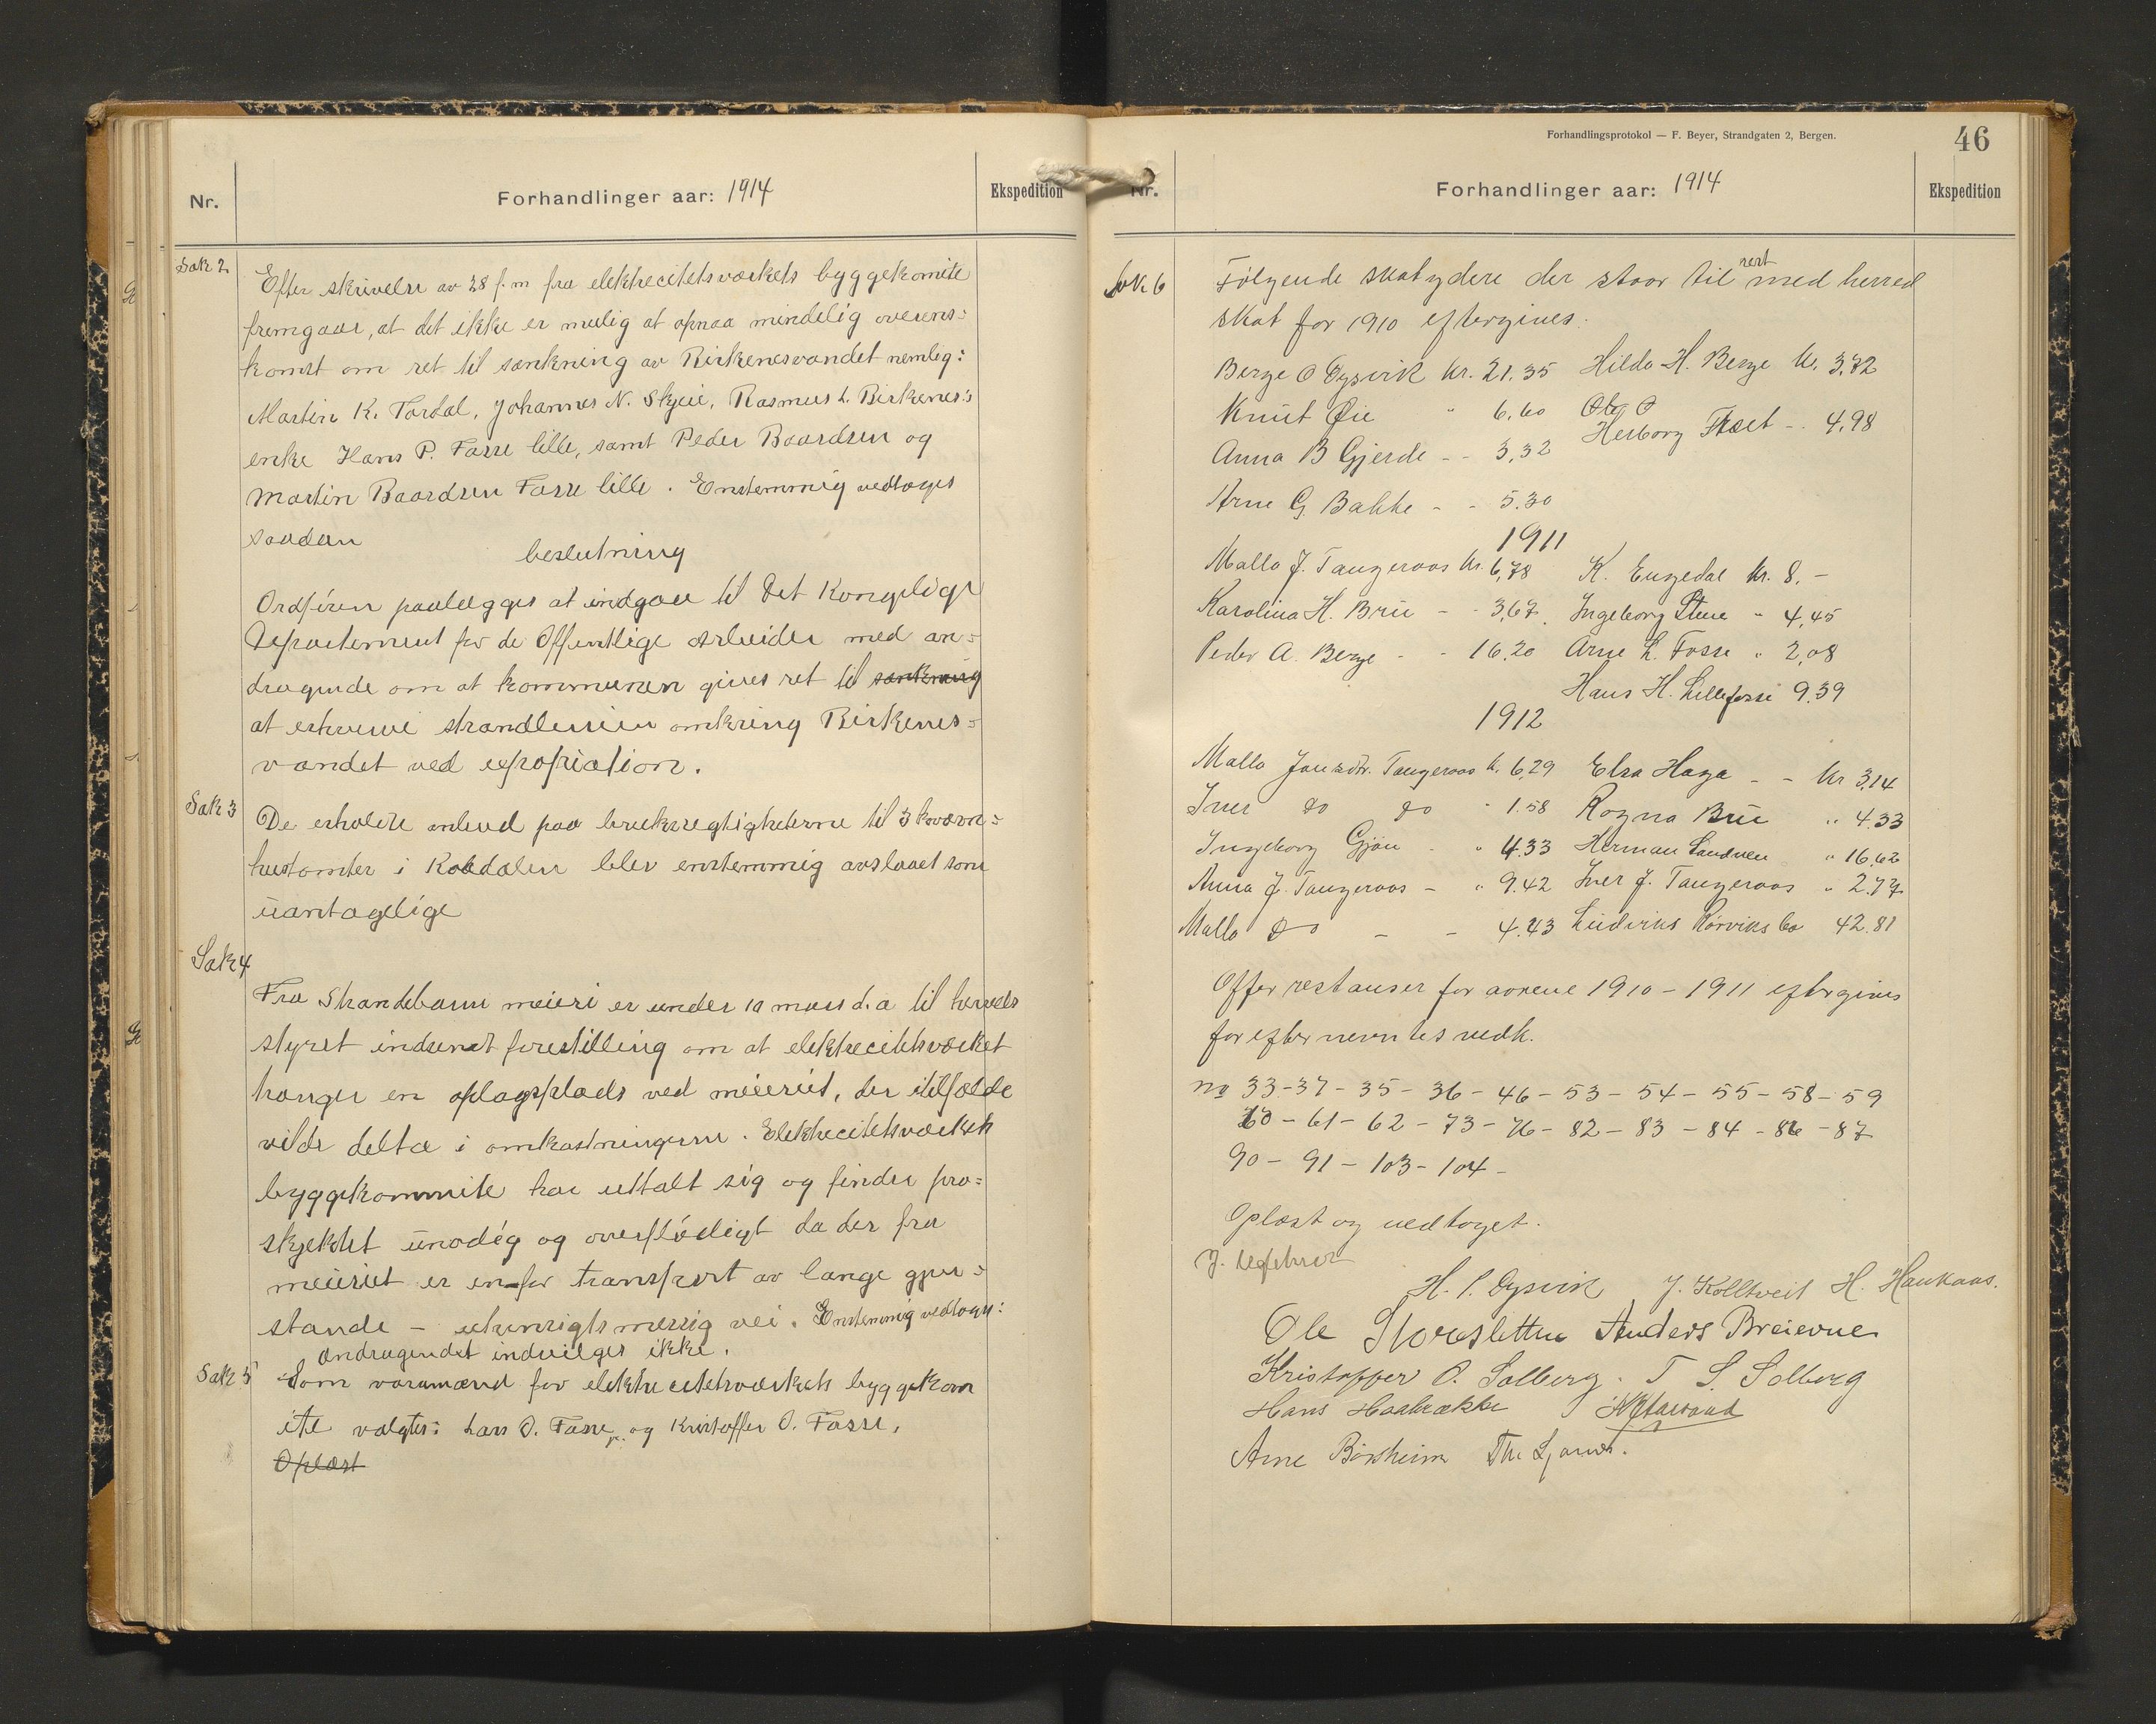 Nr.
Forhandlinger aar: 1914
Ekspedition
Sak 2
Efter skrivelse av 28 f. m fra elektrecitetsværkets byggekomite
fremgaar, at det ikke er mulig at opnaa mindelig overens=
komst om ret til sænkning av Birkenesvandet nemlig:
Martin K. Tordal, Johannes N. Skjeie, Rasmus L. Birkenes's
enke Hans P. Fosse lille, samt Peder Baardsen og
Martin Baardsen Fosse lille. Enstemmig vedtoges
saadan
beslutning
Ordføren paalægges at indgaa til Det Kongelige
Departement for de Offentlige Arbeider med an=
dragende om at kommunen gives ret til sænkning
at erhverve strandlinien omkring Birkenes=
vandet ved expropriation.
Sak 3
De erholdte anbud paa bruksregtighetene til 3 kværn=
hustomter i Koldalen blev enstemmig avslaaet som
uantagelige
Sak 4
Fra Strandebarm meieri er under 10 mars d. a til herreds
styret indsendt forestilling om at elektrecitetsværket
trænger en oplagsplads ved meieriet, der itilfælde
vilde delta i omkostningerne. Elektrecitetsværkets
byggekommite har uttalt sig og finder pro=
skjektet unødig og overflødigt da der fra
meieriet er en for transport av lange gjen=
stande – uhensigtsmessig vei. Enstemmig vedtoges:
Andragendet indvilges ikke.
Sak 5
Som varamænd for elektrecitetsværkets byggekom
ite valgtes: Lars O. Fosse jr. og Kristoffer O. Fosse.
Oplæst
Forhandlingsprotokol — F. Beyer, Strandgaten 2, Bergen.
46
Nr.
Forhandlinger aar: 1914
Ekspedition
Sak 6
Følgende skatydere der staar til rest med herred
skat for 1910 eftergives.
Berge O Øysvik kr. 21.35 Hilda H. Berge kr. 3,72
Knut Øie " 6.60
Herborg Fosset - 4.98
Anna B Gjerde - - 3,32
Arne G. Bakke - - 5.30
1911
Malla J. Tangeraas kr. 6,78 K. Engedal kr. 8. –
Karolina H. Brue - - 3,67. Ingeborg Steine " 4,45
Peder A. Berge - - 16,20 Arne L. Fosse " 2,08
Hans H. Lillefosse 9.39
1912
Malla Jonsdtr. Tangeraas k. 6,29 Elsa Haga - - kr 3,14
Iver do do " 1.58 Ragna Brue " 4.33
Ingeborg Gjøn - " 4.33 Herman Sandven " 16.62
Anna J. Tangeraas - " 9.42 Iver J. Tangeraas " 2.77
Malla do - - 4.43 Ludviks Rørviks bo 42.81
Offer restanser for aarene 1910 – 1911 eftergives
for efternevntes vedk.
No 33 - 37 - 35 - 36 - 46 - 53 - 54 - 55 - 58 - 59
60 - 61 - 62 - 73 - 76 - 82 - 83 - 84 - 86 - 87
90 - 91 - 103 - 104 -
Oplæst og vedtaget.
H. P. Øysvik J. Kolltveit H. Haukaas.
Ole Storesletten Anders Breievne
Kristoffer O. Solberg. T S. Solberg
Hans Haabrække
Arne Børsheim